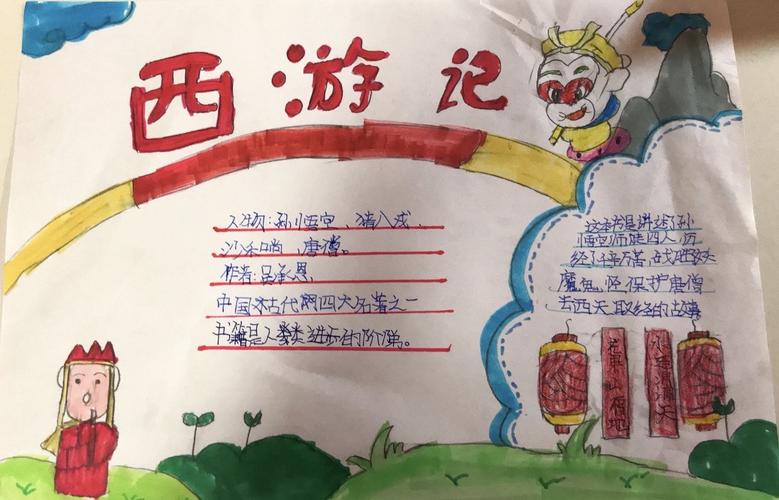 西游记
人物：孙悟空、猪八戒、
沙和尚、唐僧。
作者：吴承恩.
中国古代四大名著之一
书籍是人类进步的阶梯。
这本书是讲述了孙
悟空师徒四人，历
经了千辛万苦，战胜妖
魔鬼怪保护唐僧
去西天取经的故事
福地
水帘洞洞天